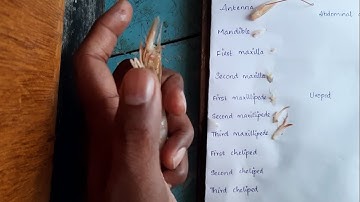 Antenna
Abdominal
Mandible
First maxilla
Second maxilla
First maxillipede
Uropod
Second maxillipede
Third maxillipede
First cheliped
Second cheliped
Third cheliped